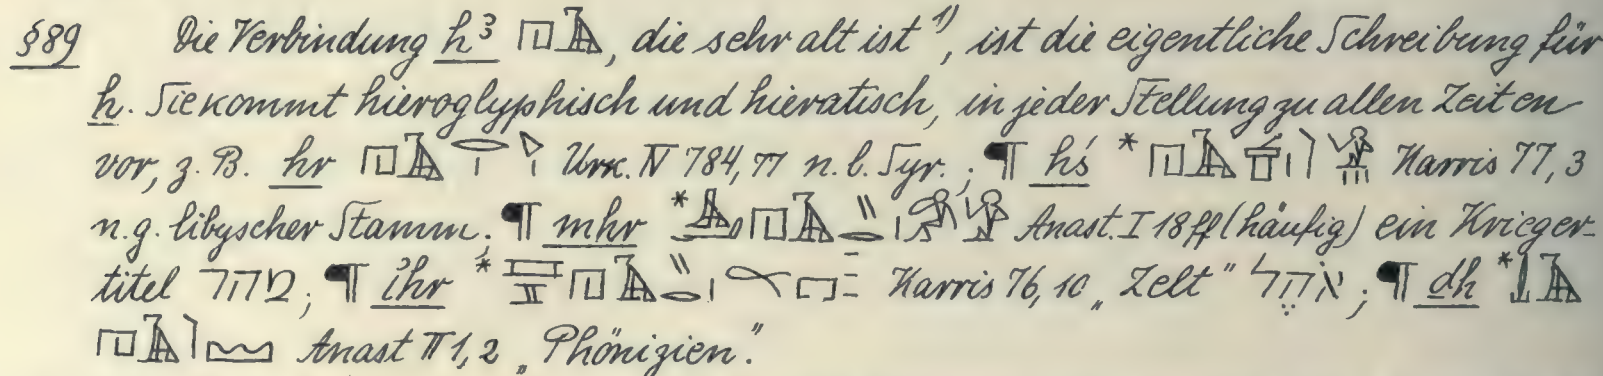 §89 Die Verbindung hꜣ 𓉔𓄿, die sehr alt ist ¹⁾, ist die eigentliche Schreibung für
h. Sie kommt hieroglyphisch und hieratisch, in jeder Stellung zu allen Zeiten
vor, z. B. hr 𓉔𓄿 Urk. IV 784, 77 n. l. Syr.; ¶ hś * 𓉔𓄿 Harris 77, 3
n. g. libyscher Stamm; ¶ mhr * 𓉔𓄿 Anast. I 18 ff (häufig) ein Krieger-
titel מהר; ¶ ihr * 𓉔𓄿 Harris 76, 10 „Zelt" אֹהֶל; ¶ dh * 𓄿
𓉔𓄿 𓈉 Anast II 1, 2 „Phönizien."